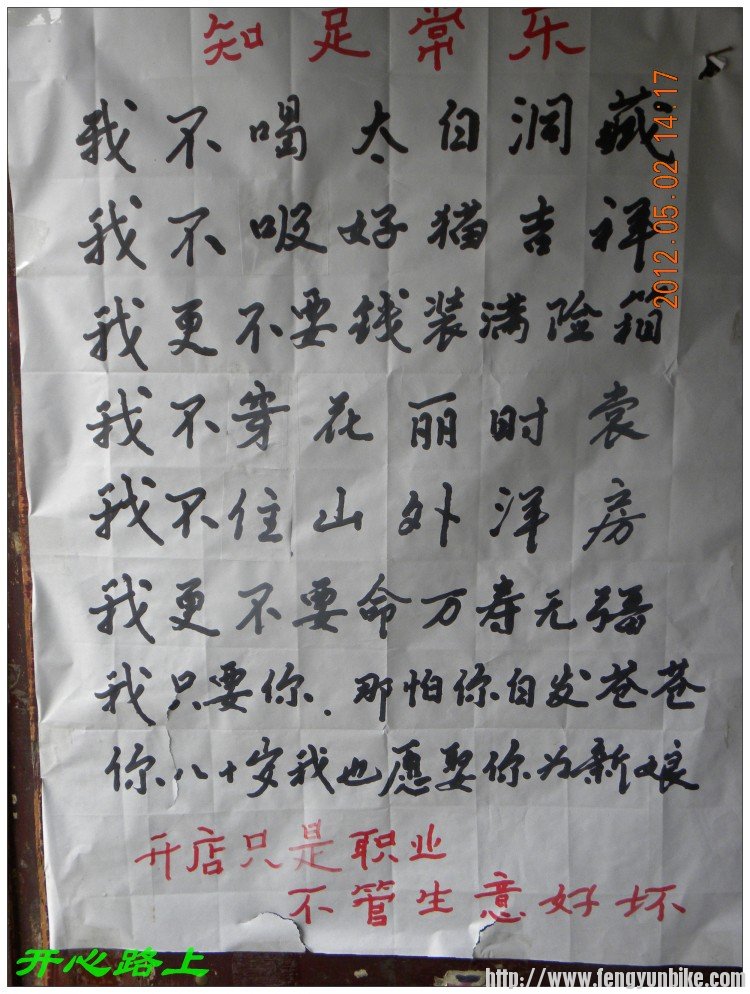 知足常乐
我不喝太白洞藏
我不吸好猫吉祥
我更不要钱装满险箱
我不穿花丽时裳
我不住山外洋房
我更不要命万寿无疆
我只要你.那怕你白发苍苍
你八十岁我也愿娶你为新娘
开店只是职业
不管生意好坏
2012.05.02 14:17
开心路上
http://www.fengyunbike.com